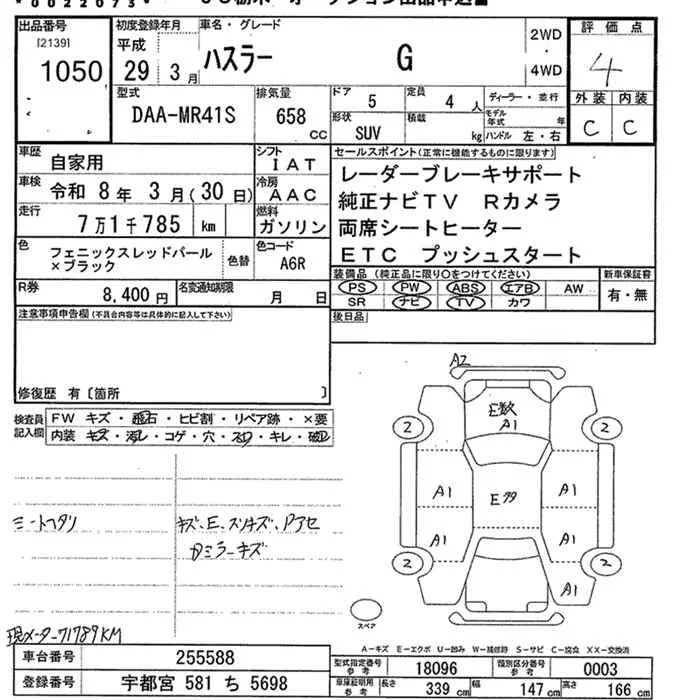 *0022073*
出品番号 初度登録年月 車名・グレード 2WD・4WD 評価点
[2139] 1050
平成 29年 3月 ハスラー G 4
型式 DAA-MR41S 排気量 658 CC
ドア 5 定員 4人 ディーラー・並行
形状 SUV 積載 kg モデル年式 年 ハンドル 左・右
外装 内装
C C
車歴 自家用 シフト IAT
車検 令和 8年 3月(30日) 冷房 AAC
走行 7万1千785 km 燃料 ガソリン
色 フェニックスレッドパール×ブラック 色替 色コード A6R
R券 8,400円 名変通知期限 月 日
セールスポイント(正常に機能するものに限ります)
レーダーブレーキサポート
純正ナビTV Rカメラ
両席シートヒーター
ETC プッシュスタート
装備品(純正品に限り○をつけてください) 新車保証書
PS PW ABS エアB AW 有・無
SR ナビ TV カワ
後日品
注意事項申告欄(不具合内容等は具体的に記入して下さい)
修復歴 有〔箇所 〕
検査員記入欄 FW キズ・飛石・ヒビ割・リペア跡・×要
内装 キズ・汚れ・コゲ・穴・スレ・キレ・破れ
シートヘタリ
キズ、E、スリキズ、Pアセ
Dミラーキズ
現メーター71789KM
A2
E数
A1
2 2
A1 E多 A1
A1 A1
2 2
A1
スペア
A-キズ E-エクボ U-凹み W-補修跡 S-サビ C-腐食 XX-交換済
車台番号 255588
型式指定番号 参考 18096 類別区分番号 参考 0003
登録番号 宇都宮 581 ち 5698
車庫証明用 参考 長さ 339 cm 幅 147 cm 高さ 166 cm